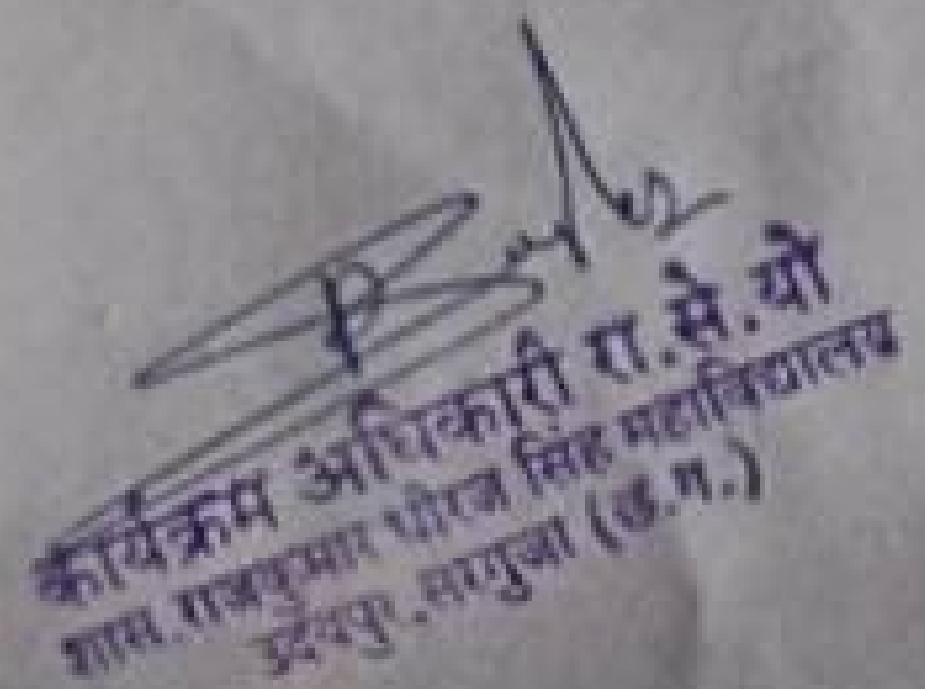 कार्यक्रम अधिकारी रा.से.यो
शास.राजकुमार धीरज सिंह महाविद्यालय
उदयपुर,सरगुजा (छ.ग.)